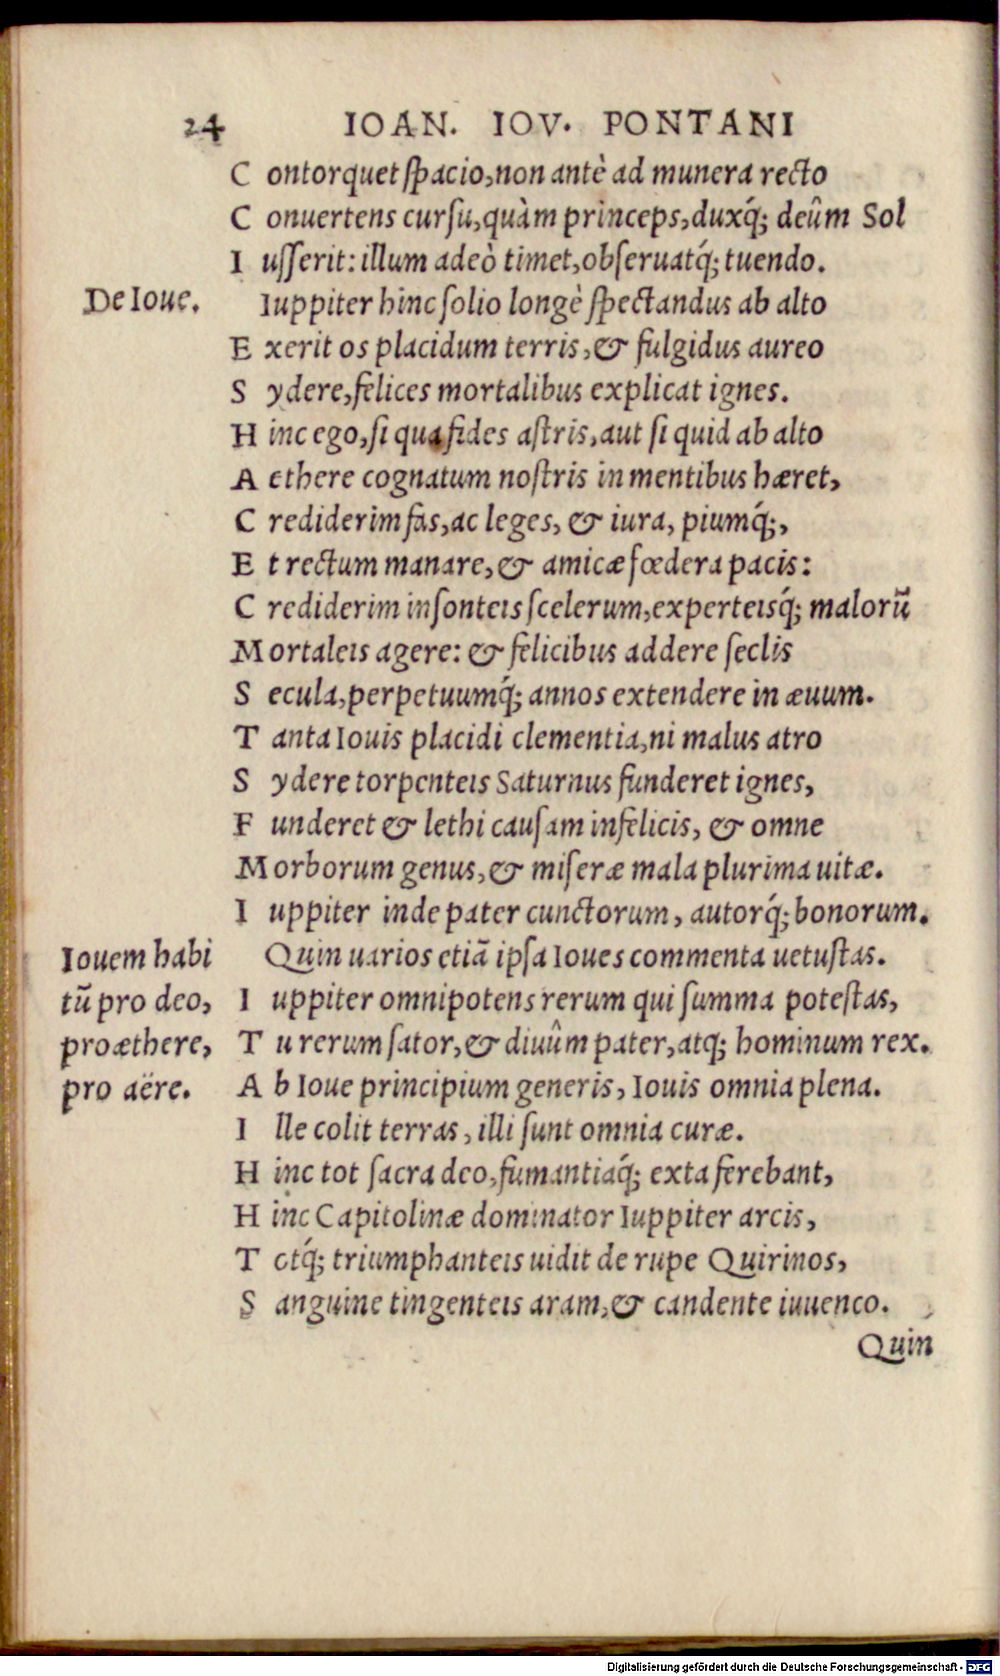 24 IOAN. IOV. PONTANI
C ontorquet ſpacio, non antè ad munera recto
C onuertens curſu, quàm princeps, duxq́; deûm Sol
I uſſerit: illum adeò timet, obſeruatq́; tuendo.
De Ioue.
Iuppiter hinc ſolio longè ſpectandus ab alto
E xerit os placidum terris, & fulgidus aureo
S ydere, felices mortalibus explicat ignes.
H inc ego, ſi qua fides aſtris, aut ſi quid ab alto
A ethere cognatum noſtris in mentibus hæret,
C rediderim fas, ac leges, & iura, piumq́;,
E t rectum manare, & amicæ fœdera pacis:
C rediderim inſonteis ſcelerum, experteisq́; malorū
M ortaleis agere: & felicibus addere ſeclis
S ecula, perpetuumq́; annos extendere in æuum.
T anta Iouis placidi clementia, ni malus atro
S ydere torpenteis Saturnus funderet ignes,
F underet & lethi cauſam infelicis, & omne
M orborum genus, & miſeræ mala plurima uitæ.
I uppiter inde pater cunctorum, autorq́; bonorum.
Iouem habi
tū pro deo,
pro æthere,
pro aëre.
Quin uarios etiā ipſa Ioues commenta uetuſtas.
I uppiter omnipotens rerum qui ſumma poteſtas,
T u rerum ſator, & diuûm pater, atq; hominum rex.
A b Ioue principium generis, Iouis omnia plena.
I lle colit terras, illi ſunt omnia curæ.
H inc tot ſacra deo, fumantiaq́; exta ferebant,
H inc Capitolinæ dominator Iuppiter arcis,
T otq́; triumphanteis uidit de rupe Quirinos,
S anguine tingenteis aram, & candente iuuenco.
Quin
Digitalisierung gefördert durch die Deutsche Forschungsgemeinschaft - DFG